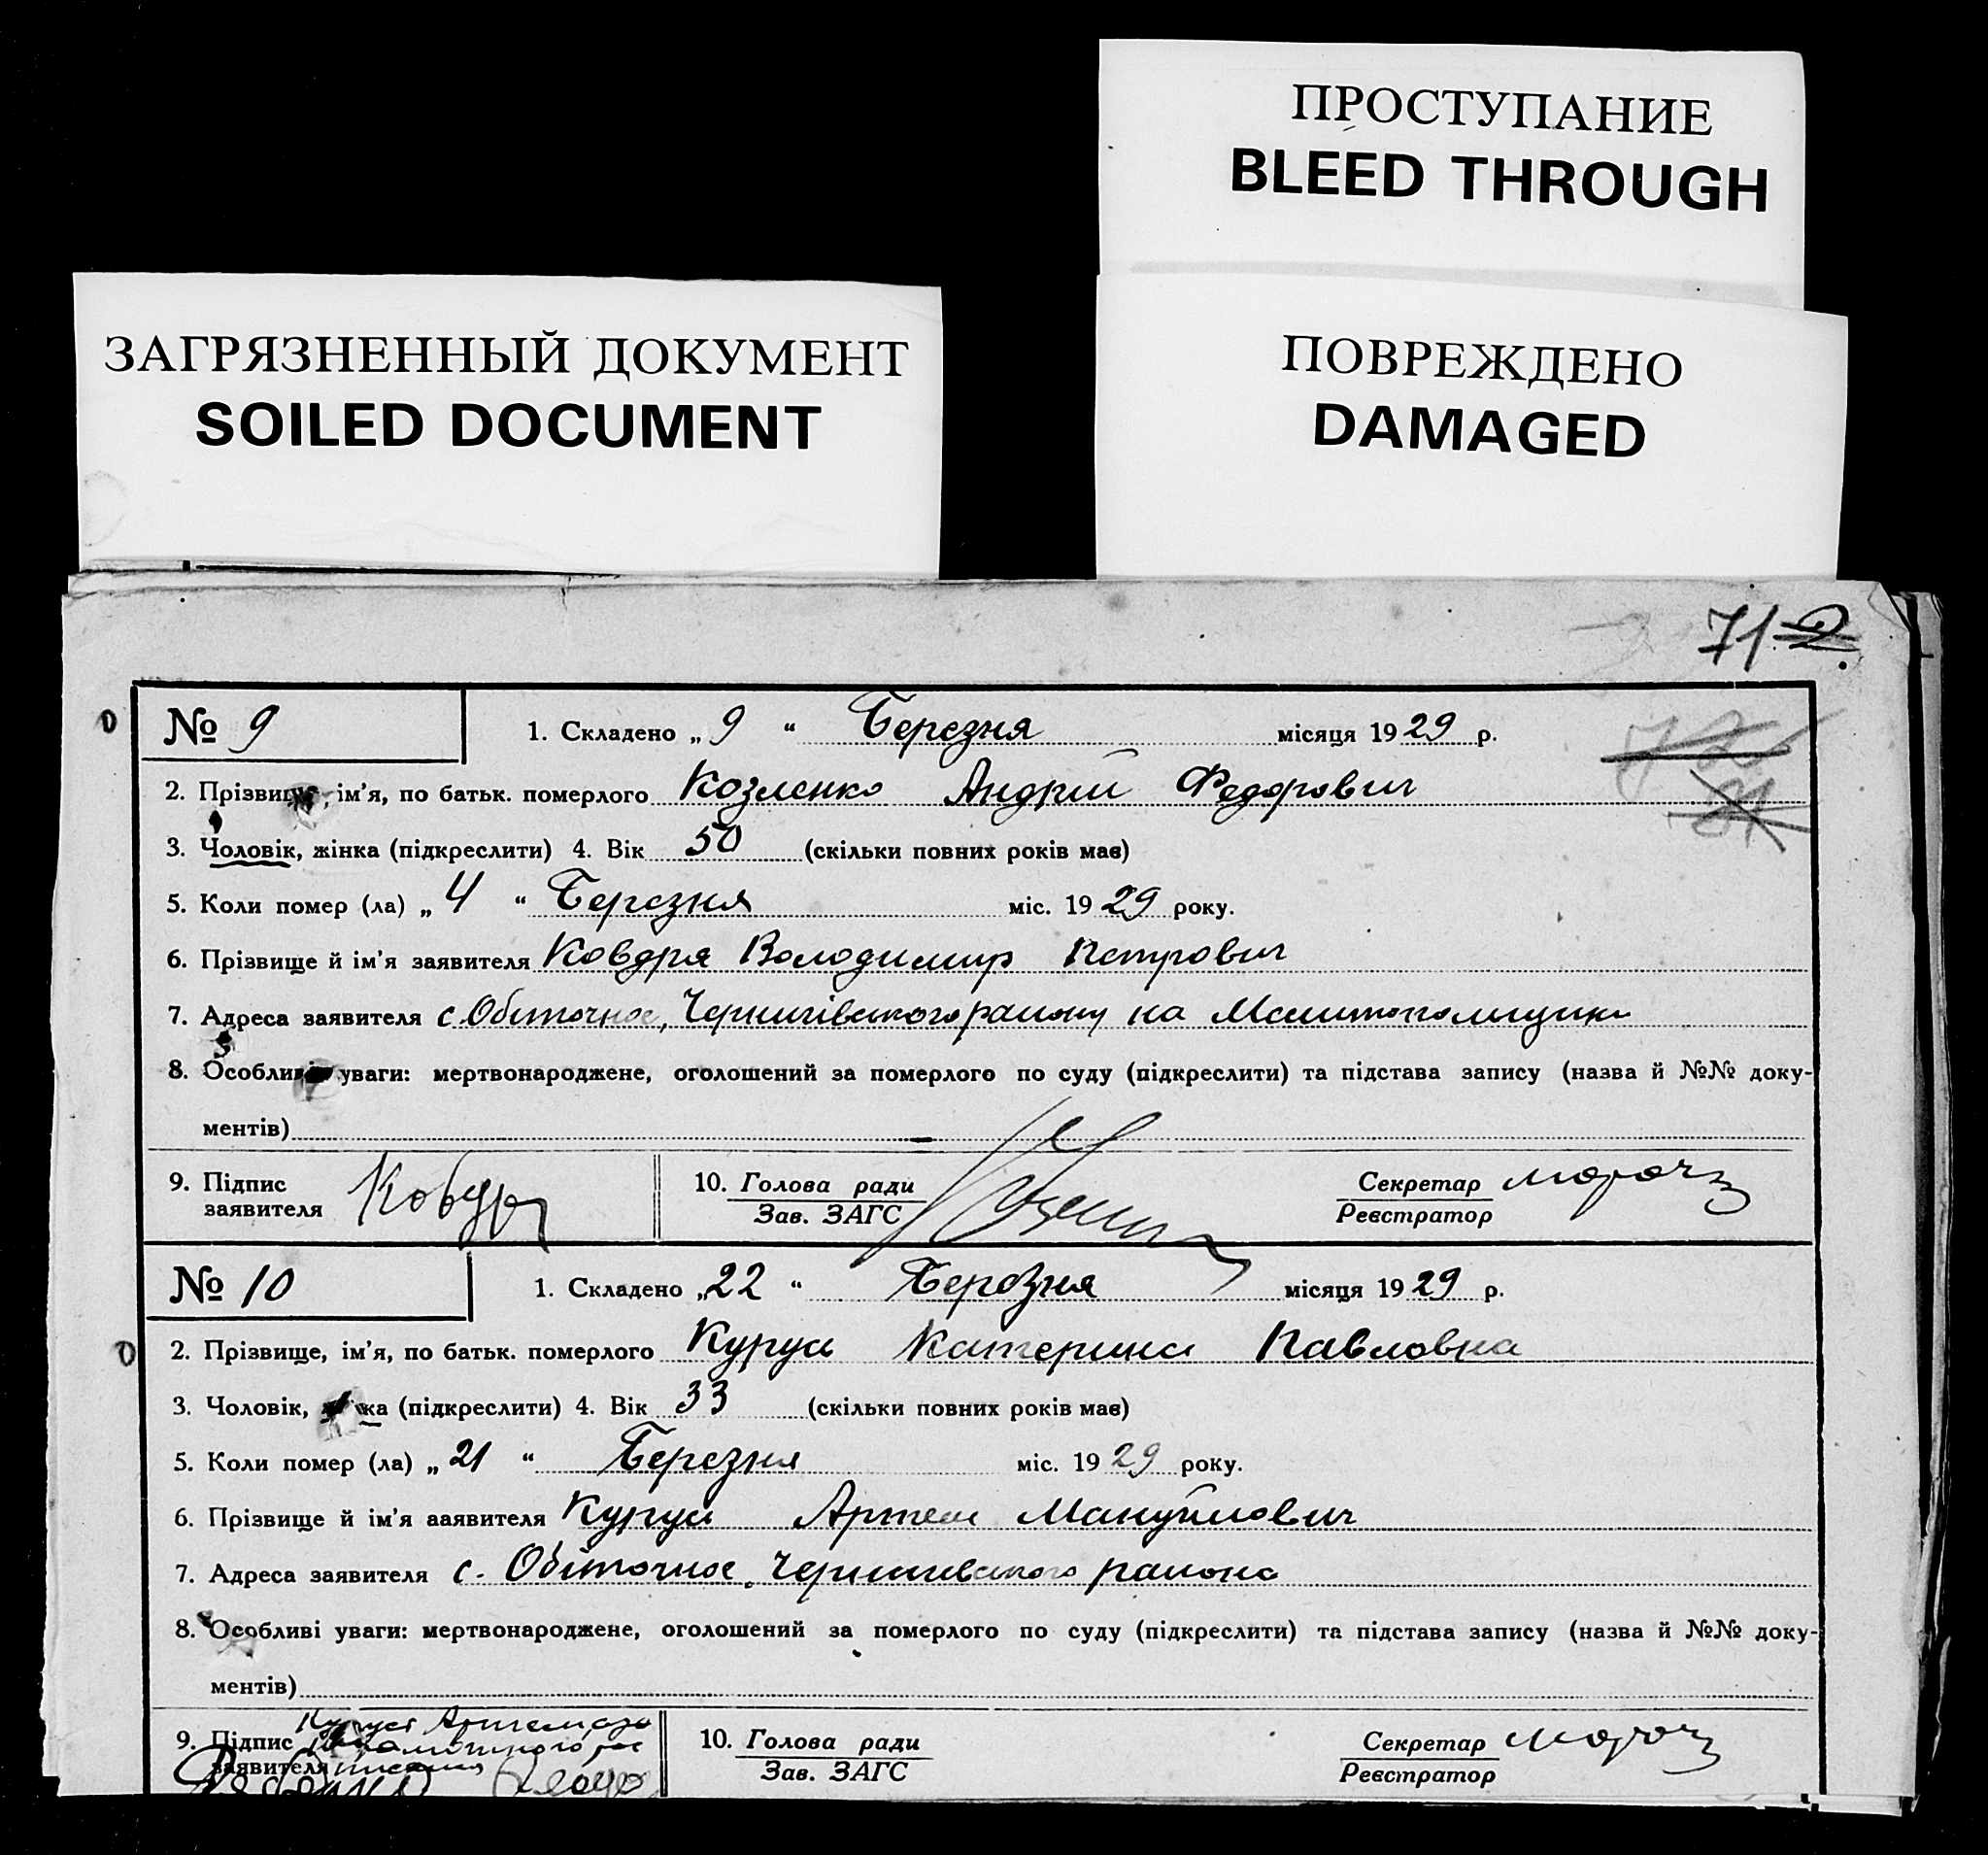 ПРОСТУПАНИЕ
BLEED THROUGH
ЗАГРЯЗНЕННЫЙ ДОКУМЕНТ
SOILED DOCUMENT
ПОВРЕЖДЕНО
DAMAGED
71 2.
№ 9
1. Складено „ 9 “ Березня місяця 1929 р.
2. Прізвище, ім'я, по батьк. померлого Козленко Андрій Федорович
3. Чоловік, жінка (підкреслити) 4. Вік 50 (скільки повних років має)
5. Коли помер (ла) „ 4 “ Березня міс. 1929 року.
6. Прізвище й ім'я заявителя Ковдря Володимир Петрович
7. Адреса заявителя с. Обіточное, Чернигівського району на Мелитопольщини
8. Особливі уваги: мертвонароджене, оголошений за померлого по суду (підкреслити) та підстава запису (назва й №№ доку-
ментів)
9. Підпис заявителя
10. Голова ради
Зав. ЗАГС
Секретар
Реєстратор
№ 10
1. Складено „ 22 “ Березня місяця 1929 р.
2. Прізвище, ім'я, по батьк. померлого Катерина Павловна
3. Чоловік, (підкреслити) 4. Вік 33 (скільки повних років має)
5. Коли помер (ла) „ 21 “ Березня міс. 1929 року.
6. Прізвище й ім'я заявителя Артем Мануйлович
7. Адреса заявителя с. Обіточное, Чернигівського района
8. Особливі уваги: мертвонароджене, оголошений за померлого по суду (підкреслити) та підстава запису (назва й №№ доку-
ментів)
9. Підпис
заявителя
10. Голова ради
Зав. ЗАГС
Секретар
Реєстратор